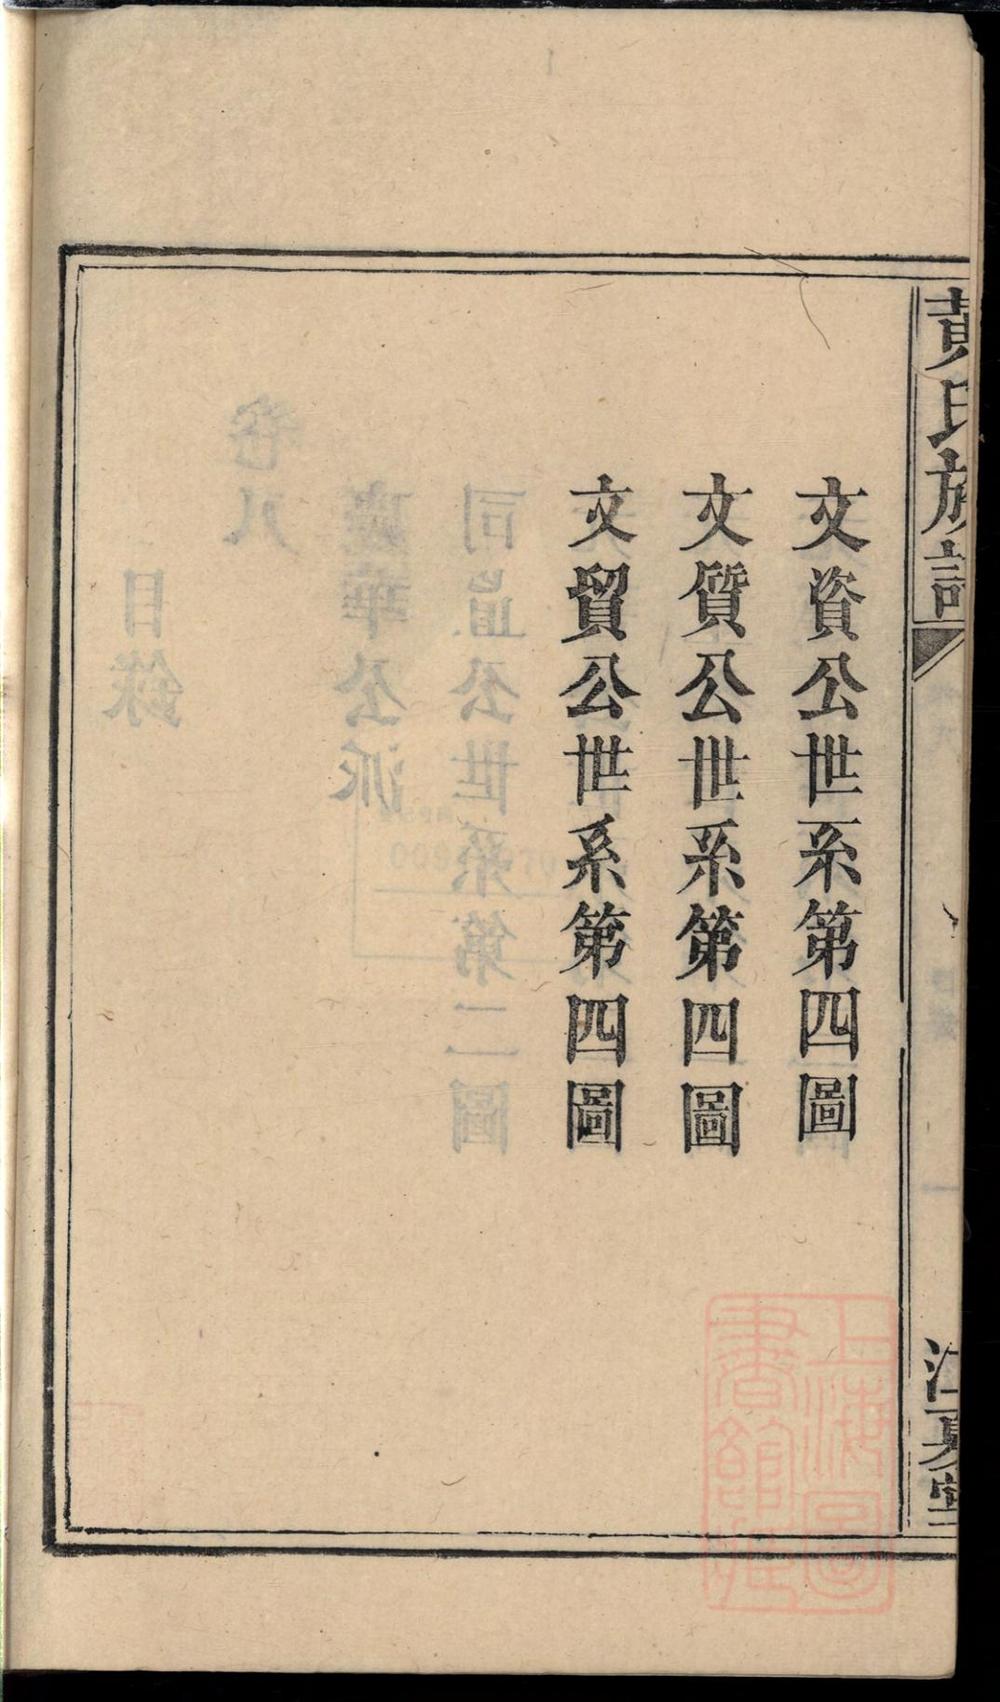 黃氏族譜
江夏堂
文資公世系第四圖
文質公世系第四圖
文貿公世系第四圖
上海圖書館藏